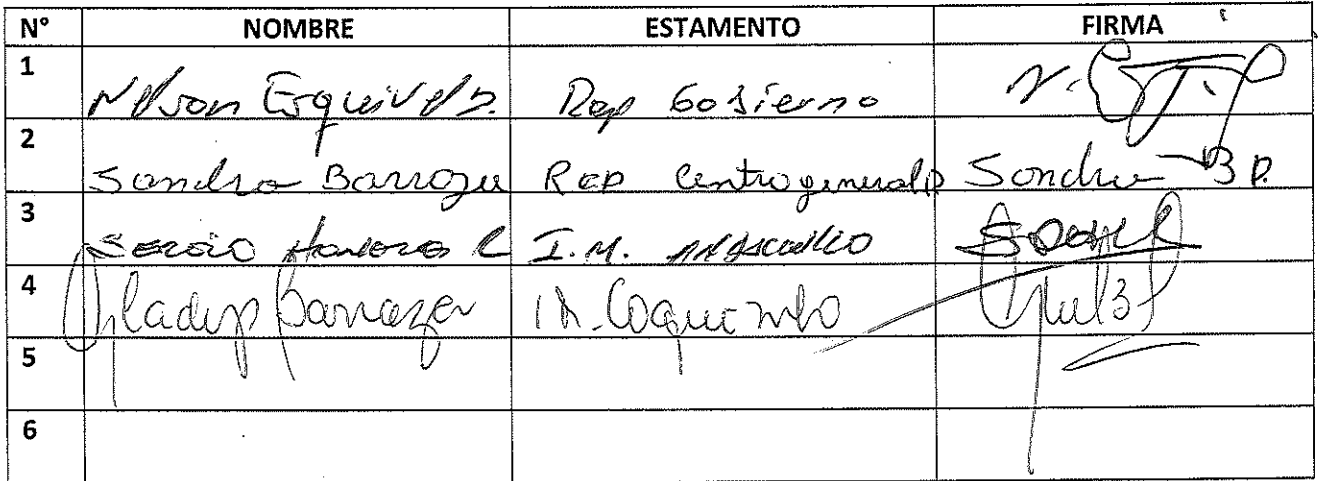 N° NOMBRE ESTAMENTO FIRMA
1 Nelson Esquivel Rep Gobierno
2 Sandra Barraza Rep Centro general Sandra B P.
3 Sergio I.M.
4 Gladys Barraza M. Coquimbo
5
6